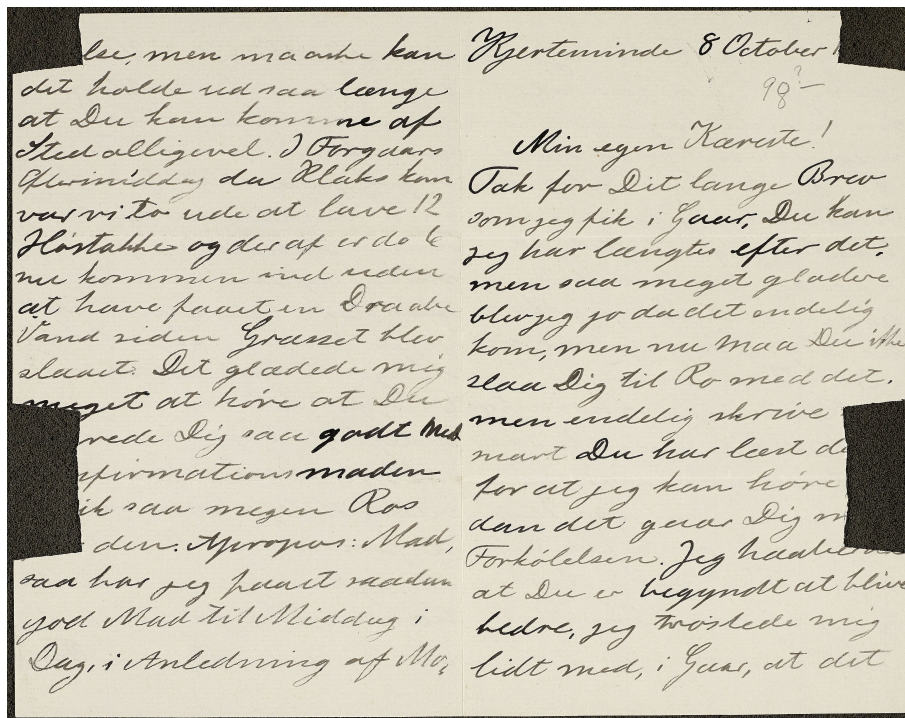 lse, men maaske kan
det holde ud saa længe
at Du kan komme af
Sted alligevel. I Forgaars
Eftermiddag da Klaks kom
var vi to ude at lave 12
Høstakke og deraf er de 6
nu kommen ind uden
at have faaet en Draabe
Vand siden Græsset blev
slaaet. Det glædede mig
meget at høre at Du
rede Dig saa godt med
nfirmationsmaden
ik saa megen Ros
den. Apropos: Mad,
saa har jeg faaet saadan
god Mad til Middag i
Dag, i Anledning af Mo,
Kjerteminde 8 October 1
98?-
Min egen Kæreste!
Tak for Dit lange Brev
som jeg fik i Gaar, Du kan
jeg har længtes efter det,
men saa meget gladere
blev jeg jo da det endelig
kom, men nu maa Du ikke
slaa Dig til Ro med det.
men endelig skrive
snart Du har læst de
for at jeg kan høre
dan det gaar Dig m
Forkølelsen. Jeg haaber
at Du er begyndt at blive
bedre, jeg trøstede mig
lidt med, i Gaar, at det